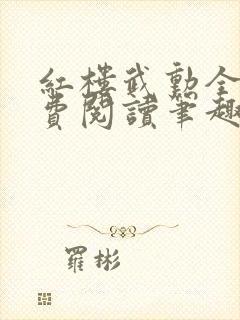 紅樓武勳全
費閱讀筆趣
羅彬